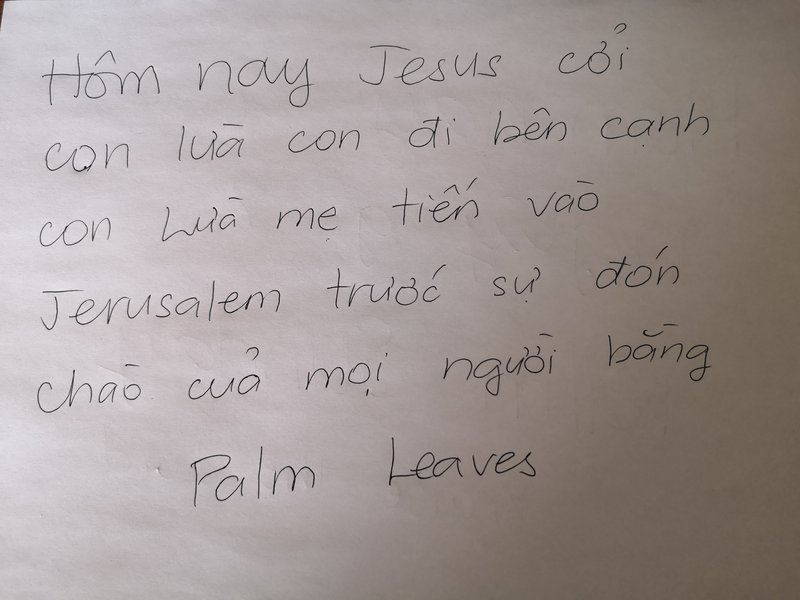 Hôm nay Jesus cởi
con lừa con đi bên cạnh
con Lừa mẹ tiến vào
Jerusalem trước sự đón
chào cuả mọi người bằng
Palm Leaves